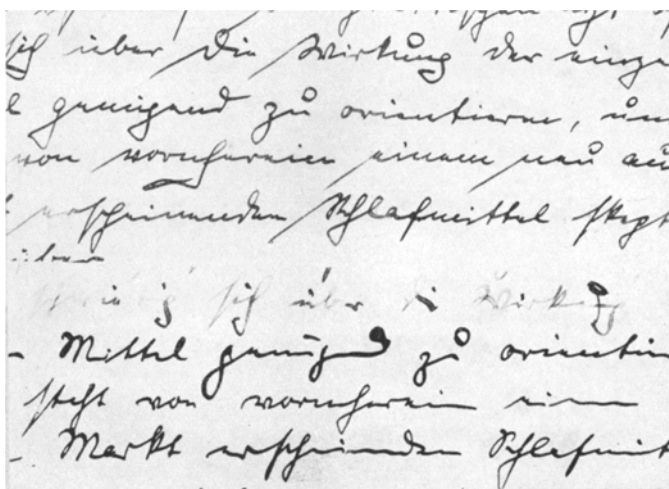 sich über die Wirkung der einze
l genügend zu orientieren, un
von vornherein einem neu au
t erscheinenden Schlafmittel skept
iben
schwierig sich über die Wirkung
- Mittel genügend zu orientie
steht von vornherein einem
- Markt erscheinenden Schlafmit